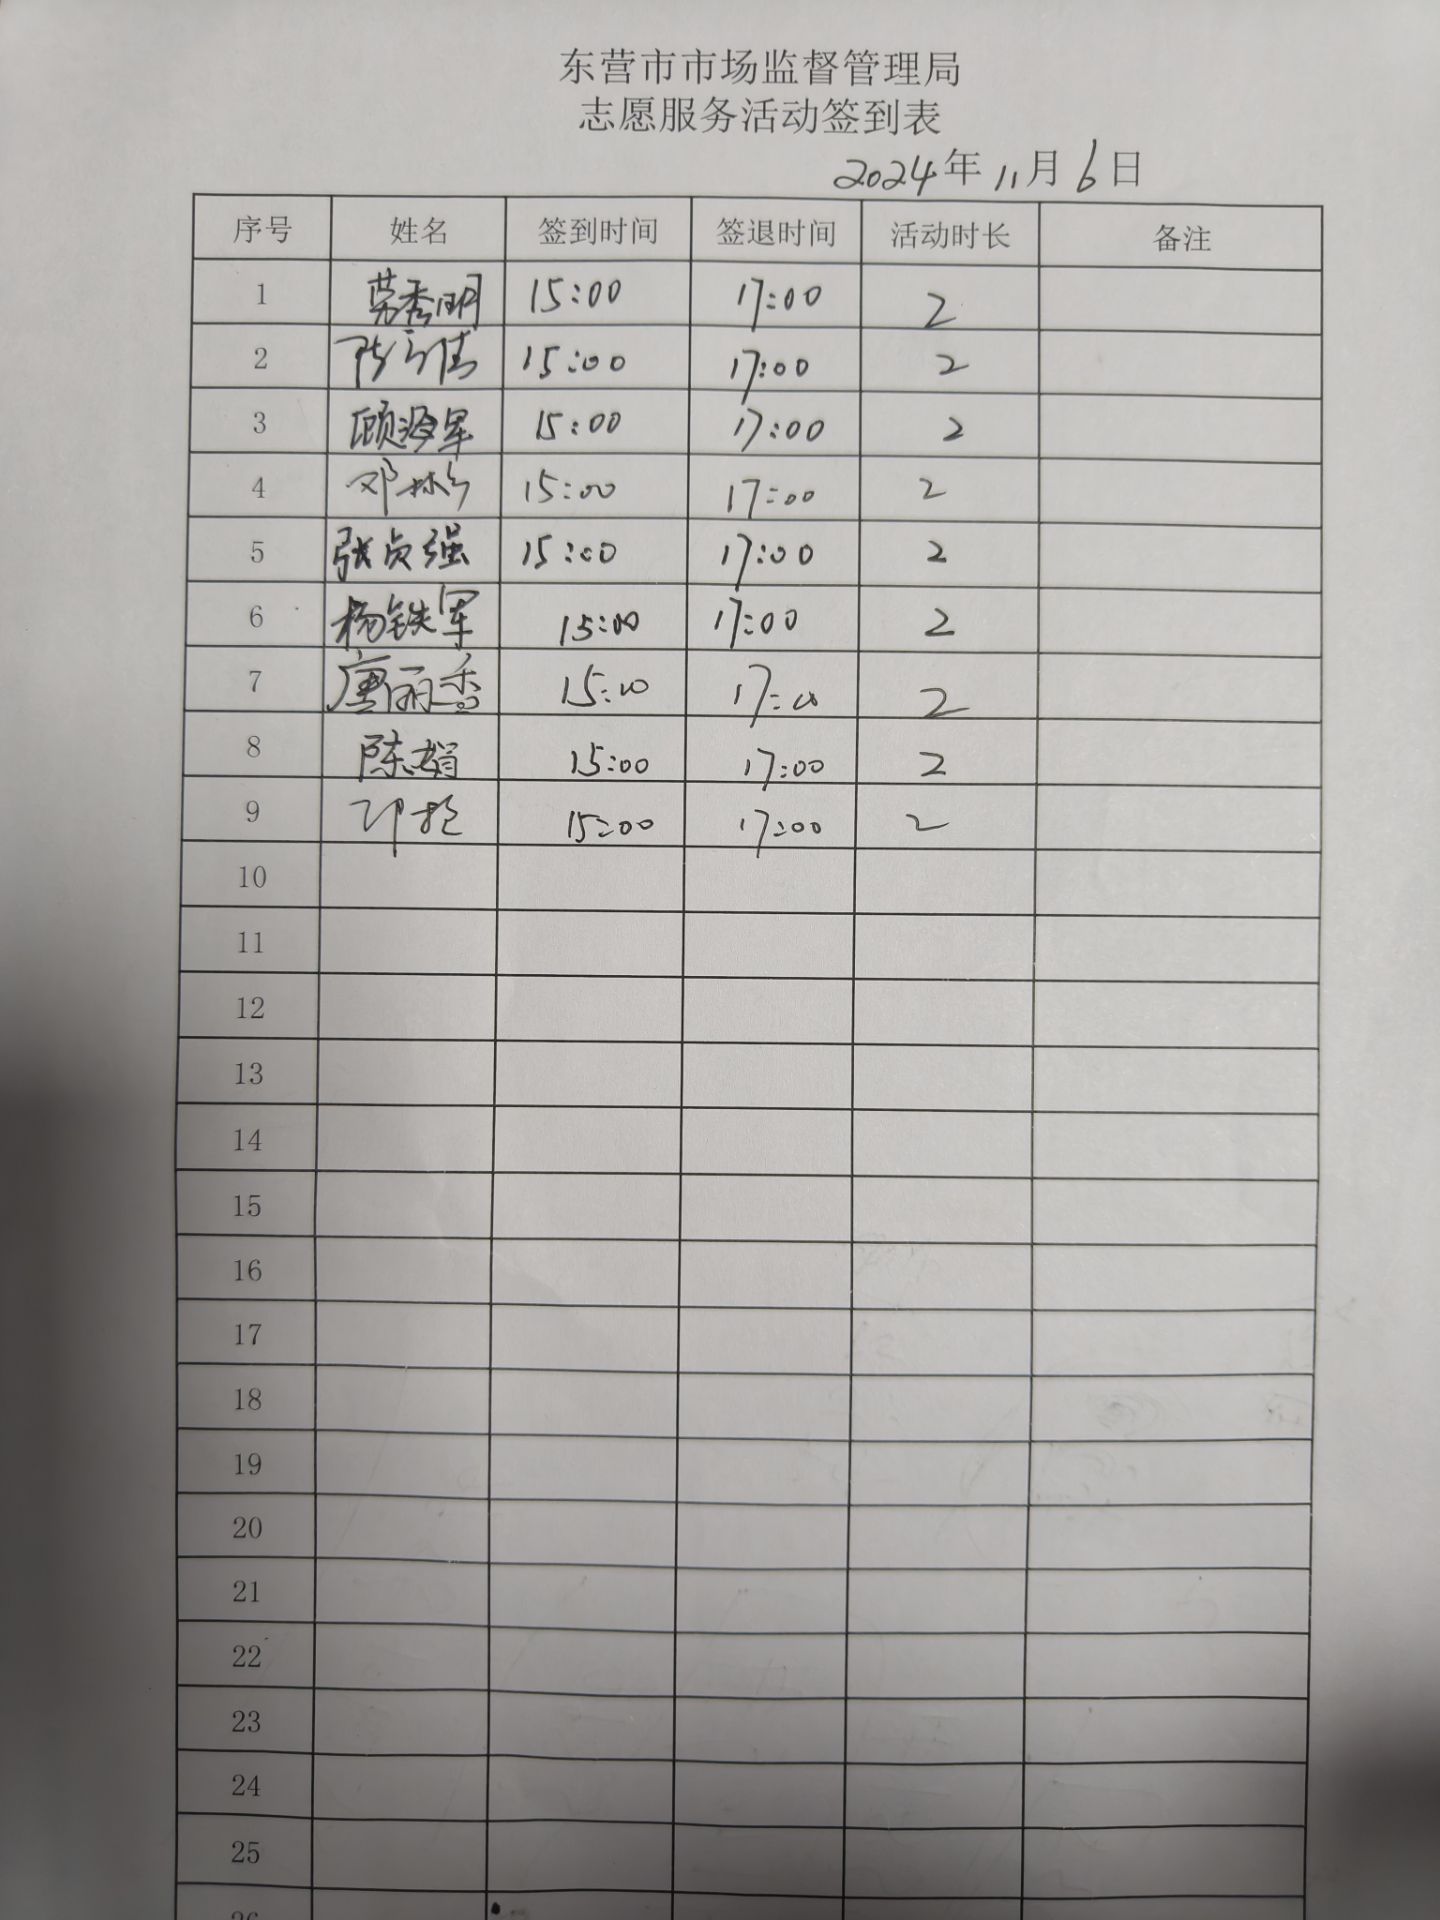 东营市市场监督管理局
志愿服务活动签到表
2024年11月6日
序号 姓名 签到时间 签退时间 活动时长 备注
1 劳秀明 15:00 17:00 2
2 15:00 17:00 2
3 顾海军 15:00 17:00 2
4 邓 15:00 17:00 2
5 张贞强 15:00 17:00 2
6 杨铁军 15:00 17:00 2
7 唐丽香 15:00 17:00 2
8 陈娟 15:00 17:00 2
9 15:00 17:00 2
10
11
12
13
14
15
16
17
18
19
20
21
22
23
24
25